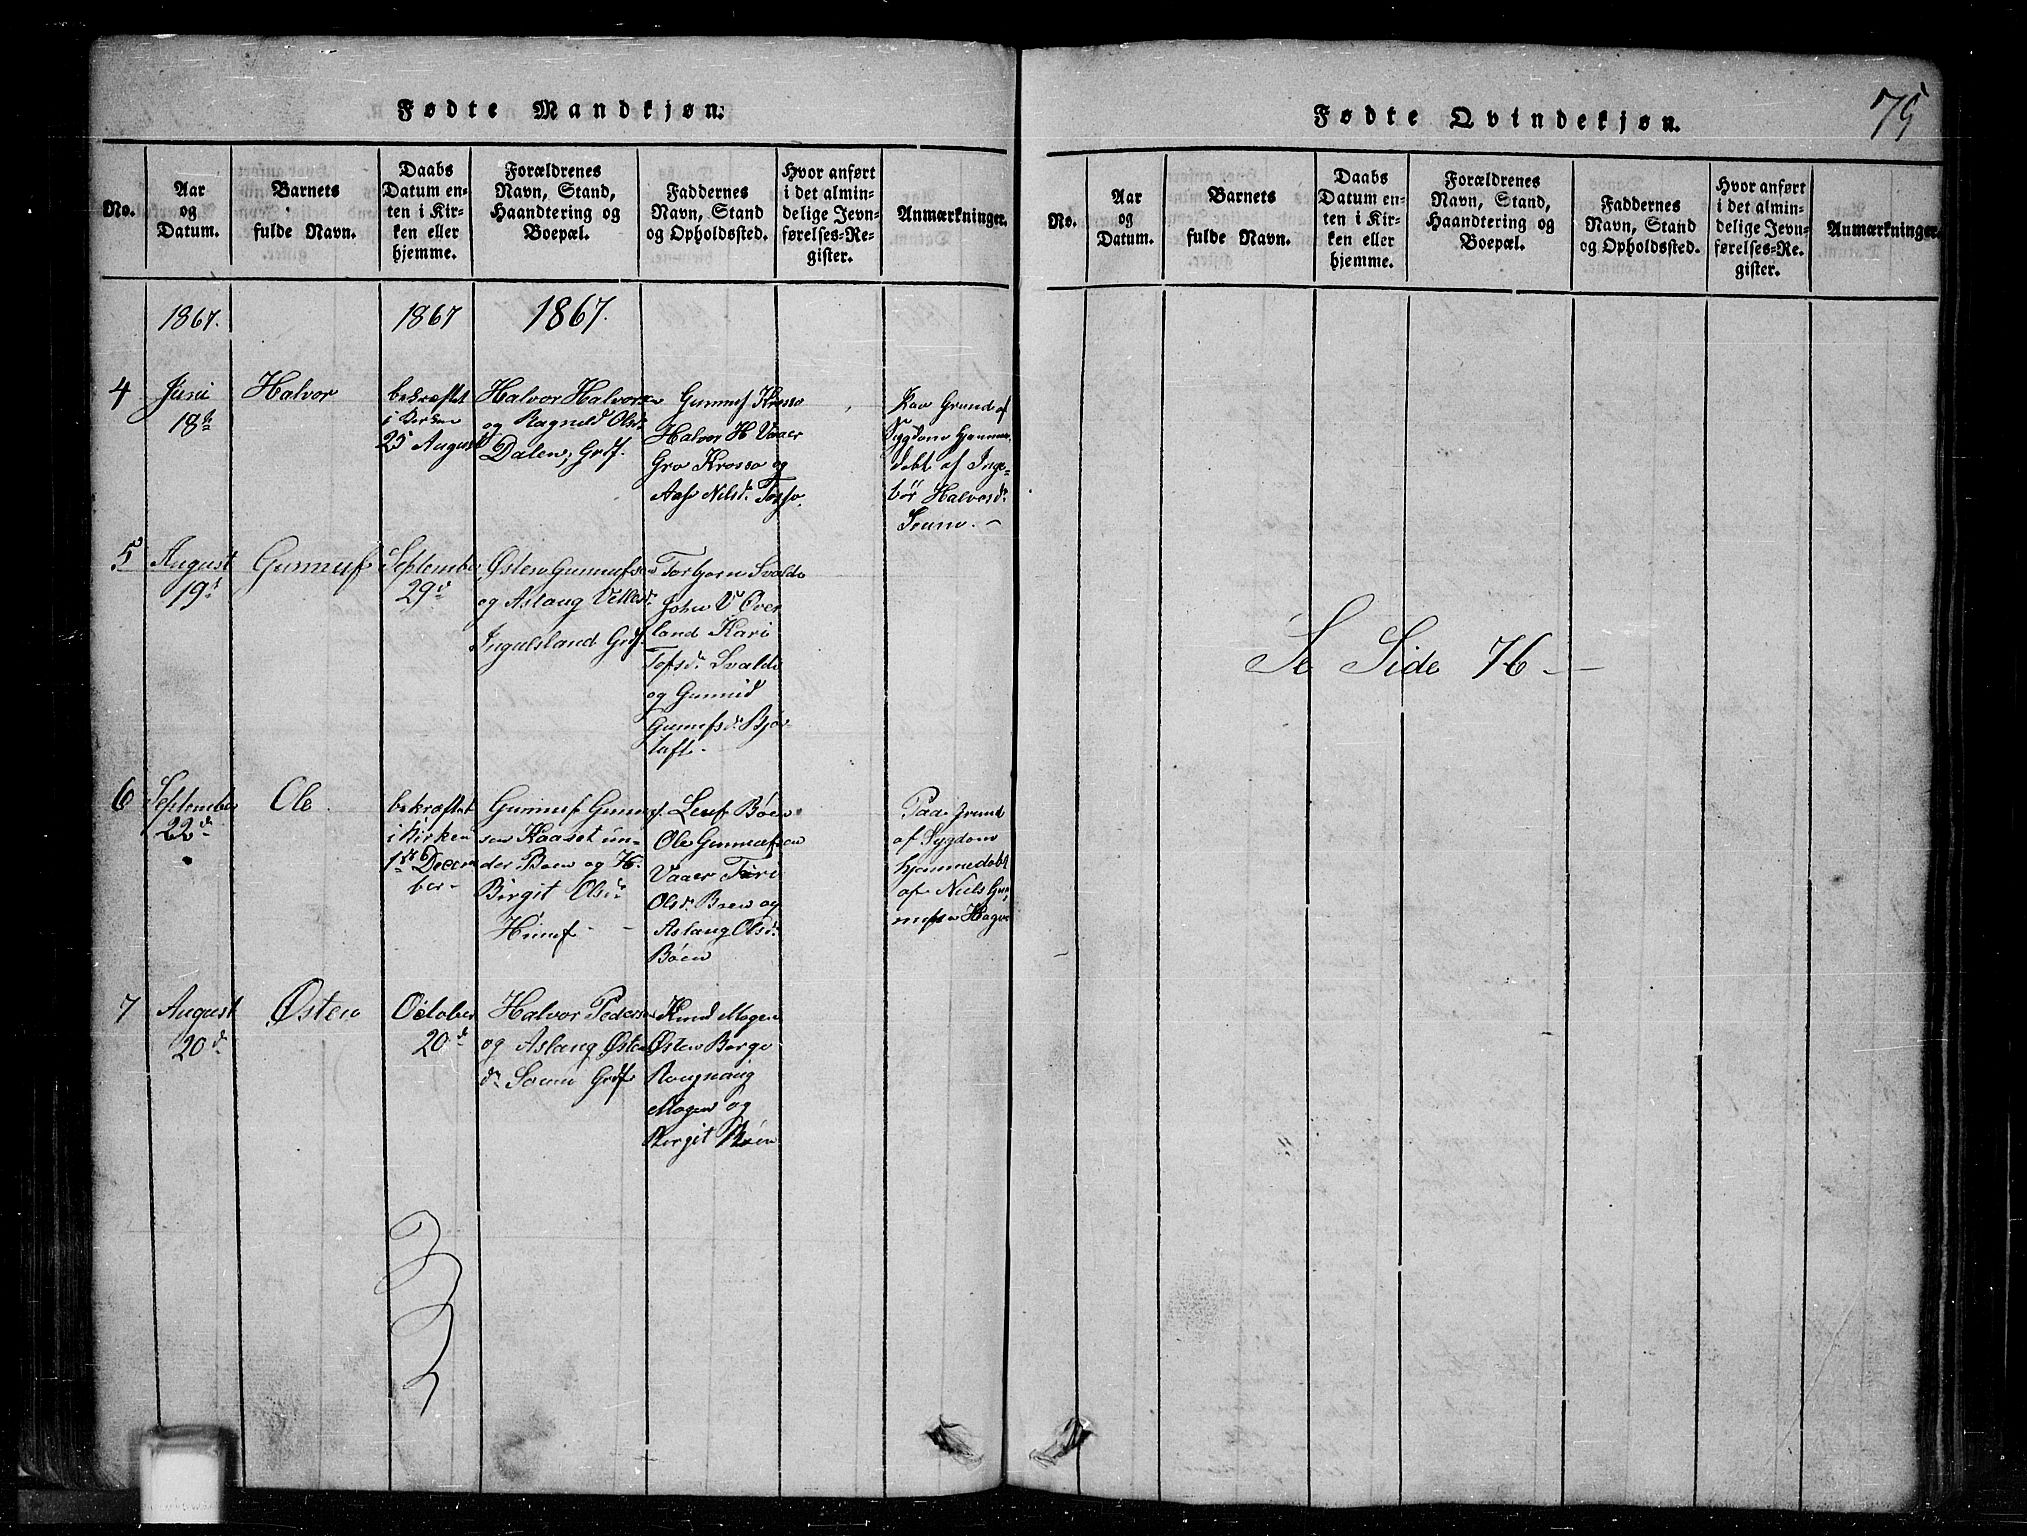 Fødte Mandkjøn.
No.
Aar
og
Datum.
Barnets
fulde Navn.
Daabs
Datum en-
ten i Kir-
ken eller
hjemme.
Forældrenes
Navn, Stand,
Haandtering og
Boepæl.
Faddernes
Navn, Stand
og Opholdssted.
Hvor anført
i det almin-
delige Jevn-
førelses-Re-
gister.
Anmærkninger.
1867.
1867
1867.
4
Juni
18de
Halvor
bekræftet
i Kirken
25 August
Halvor Halvorsen
og Ragnild Olsdr
Dalen, Grdf.
Gunnuf Krosso
Halvor H Vaaer
Gro Krosso og
Aase Nilsdr
Grund af
Sygdom hjemme-
døbt af Inge-
bør Halvorsdr
5
August
19d
Gunnuf
September
29d
Østen Gunnufsen
og Aslaug
Ingulsland Grdf.
Torbjorn Svalde
John V Over
land Kari
Tofsdr Svalde
og Gunnild
Gunufsdr Bjør-
taft.
6
September
22d
Ole
bekræftet
i Kirken
1ste Decem
ber
Gunnuf Gunnuf
sen Kaaset un-
der Boen og H.
Birgit Olsdr
Hunuf
Leuf Böen
Ole Gunnufsen
Vaaer Turi
Olsdr Boen og
Aslaug Olsdr
Böen
Paa Grund
af Sygdom
hjemmedøbt
af Niels Gun
nufsen
7
August
20d
Østen
October
20d
Halvor Pedersen
og Aslaug Østens
dr Grdf
Knud Mogen
Østen Berge
Rougnaug
Mogen og
Birgit Böen
Fødte Qvindekjøn.
75
No.
Aar
og
Datum.
Barnets
fulde Navn.
Daabs
Datum en-
ten i Kir-
ken eller
hjemme.
Forældrenes
Navn, Stand,
Haandtering og
Boepæl.
Faddernes
Navn, Stand
og Opholdssted.
Hvor anført
i det almin-
delige Jevn-
førelses-Re-
gister.
Anmærkninger.
Se Side 76 —